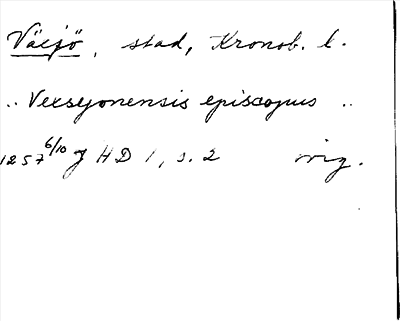 Växjö, stad, Kronob. l.
.. Vexsyonensis episcopus ..
1257 6/10 HD 1, s. 2 orig.